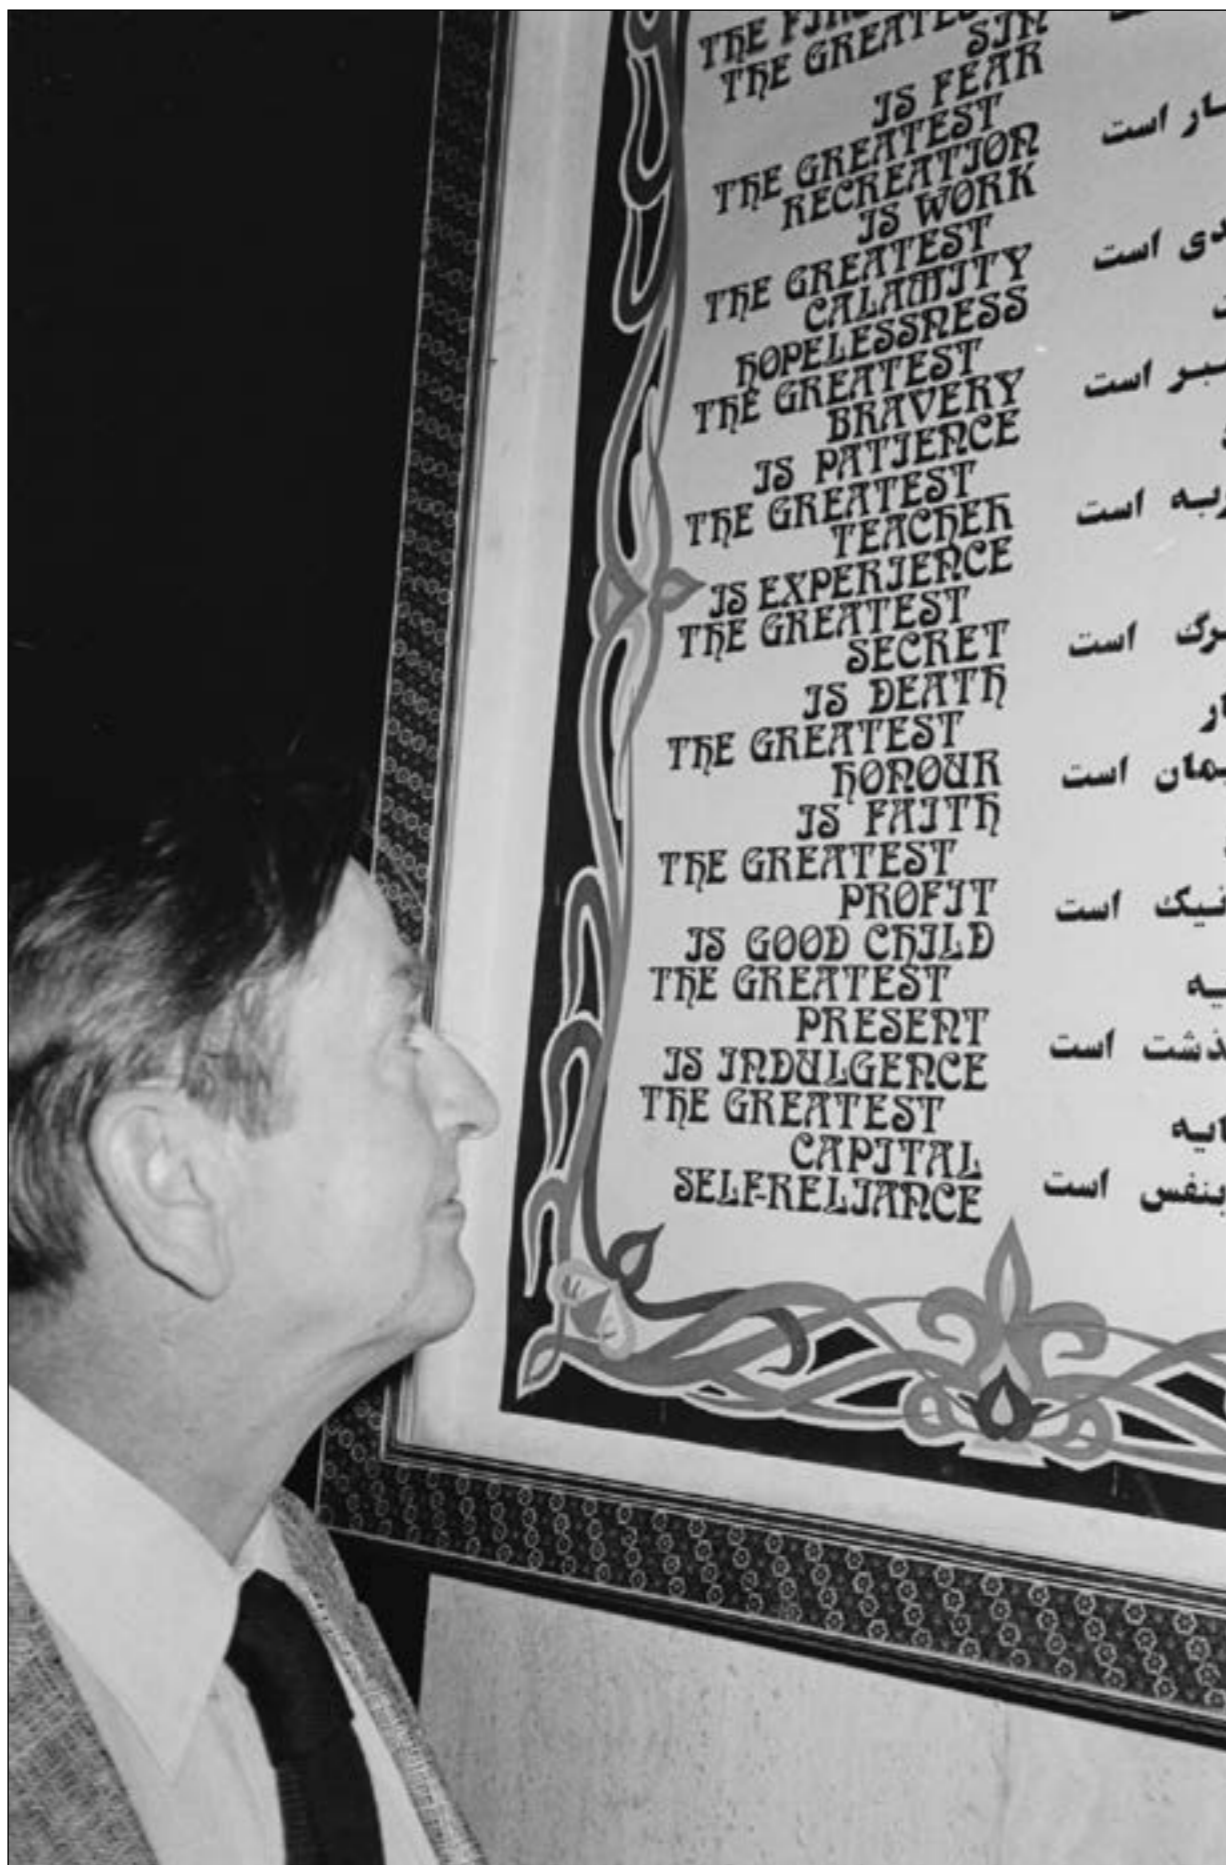 THE
THE GREATEST
SIN
IS FEAR
THE GREATEST
RECREATION
IS WORK
THE GREATEST
CALAMITY
HOPELESSNESS
THE GREATEST
BRAVERY
IS PATIENCE
THE GREATEST
TEACHER
IS EXPERIENCE
THE GREATEST
SECRET
IS DEATH
THE GREATEST
HONOUR
IS FAITH
THE GREATEST
PROFIT
IS GOOD CHILD
THE GREATEST
PRESENT
IS INDULGENCE
THE GREATEST
CAPITAL
SELF-RELIANCE
است
است
است
است
است
است
است
است
است